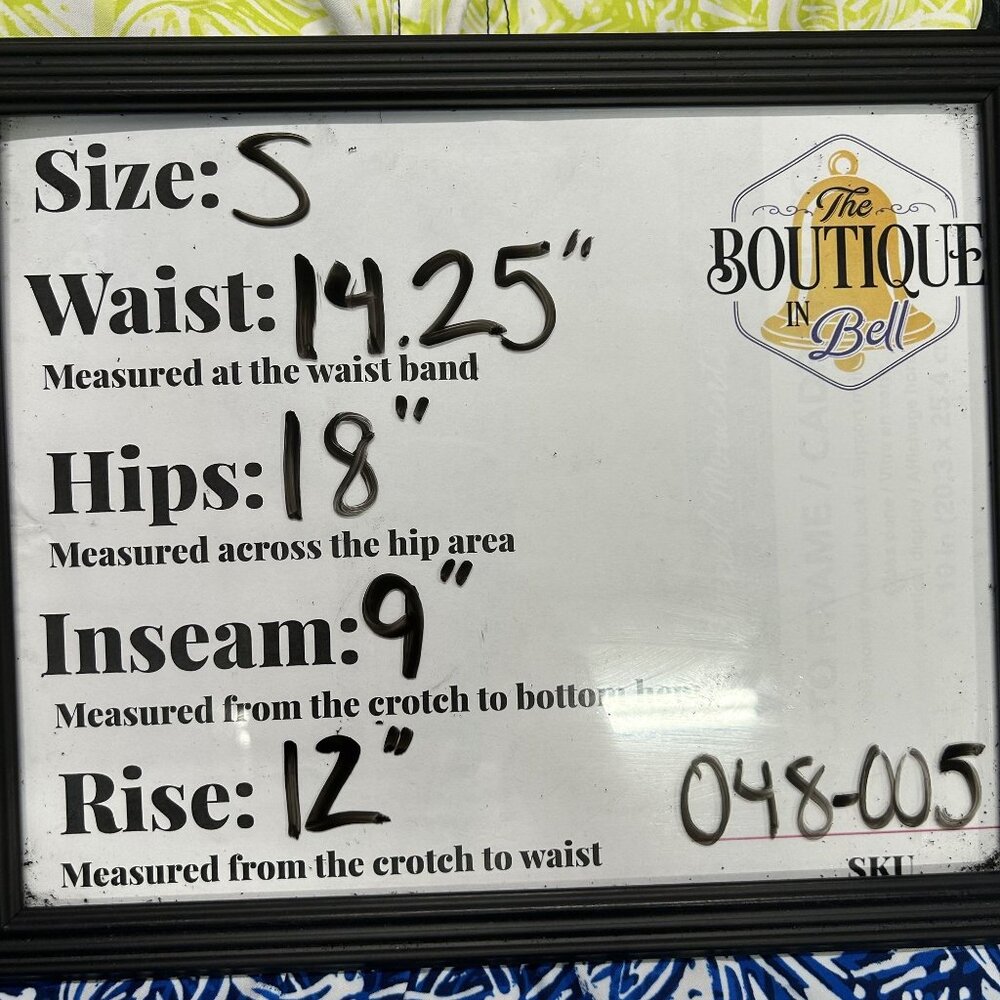 Size: S
The
BOUTIQUE
IN
Bell
Waist: 14.25"
Measured at the waist band
Hips: 18"
Measured across the hip area
Inseam: 9"
Measured from the crotch to bottom
Rise: 12"
Measured from the crotch to waist
048-005
SKU